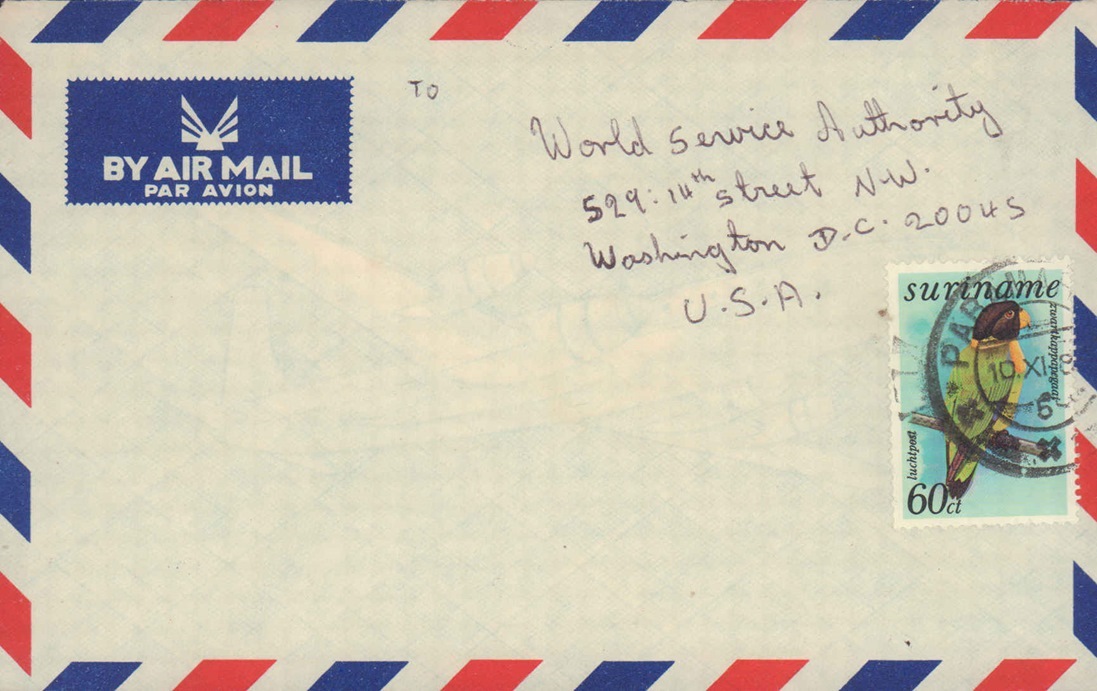 BY AIR MAIL
PAR AVION
TO
World Service Authority
529: 14th street N.W.
Washington D.C. 20045
U.S.A.
suriname
zwartkappapegaai
luchtpost
60ct
10.XI.8